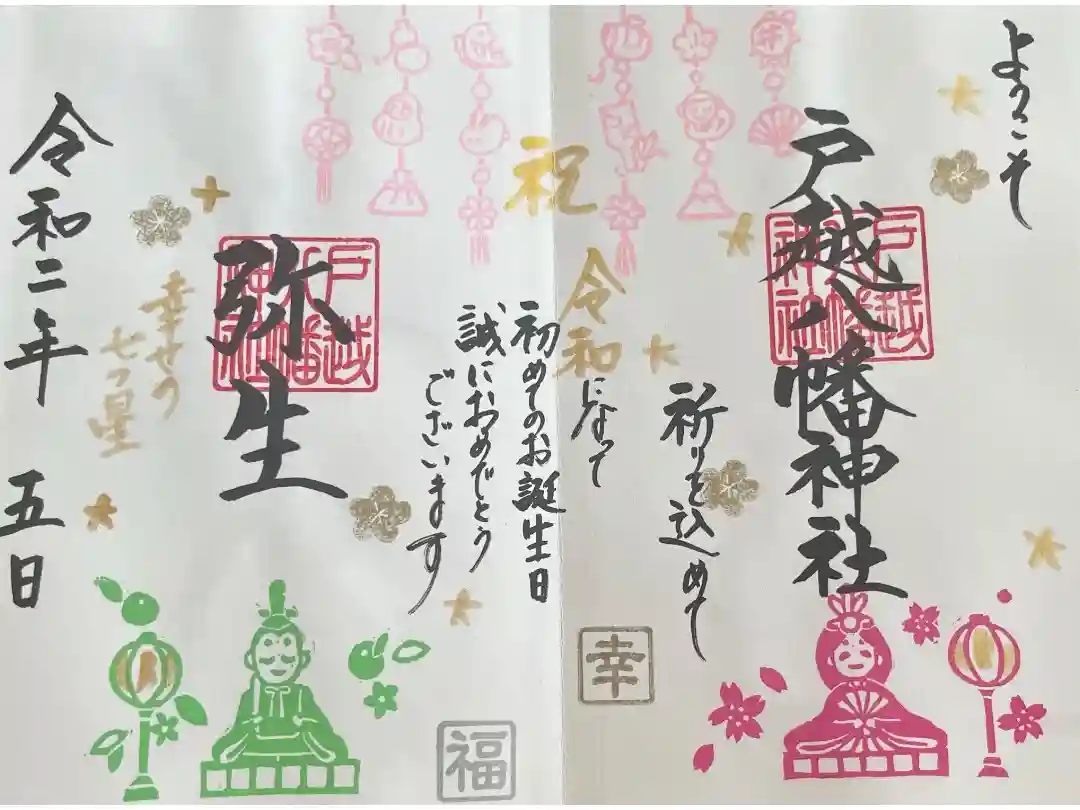 ようこそ
戸越八幡神社
戸越八幡神社
祈りを込めて
祝
令和になって
初めてのお誕生日
誠におめでとう
ございます
幸
福
弥生
戸越八幡神社
幸せの
七つ星
令和二年 五日